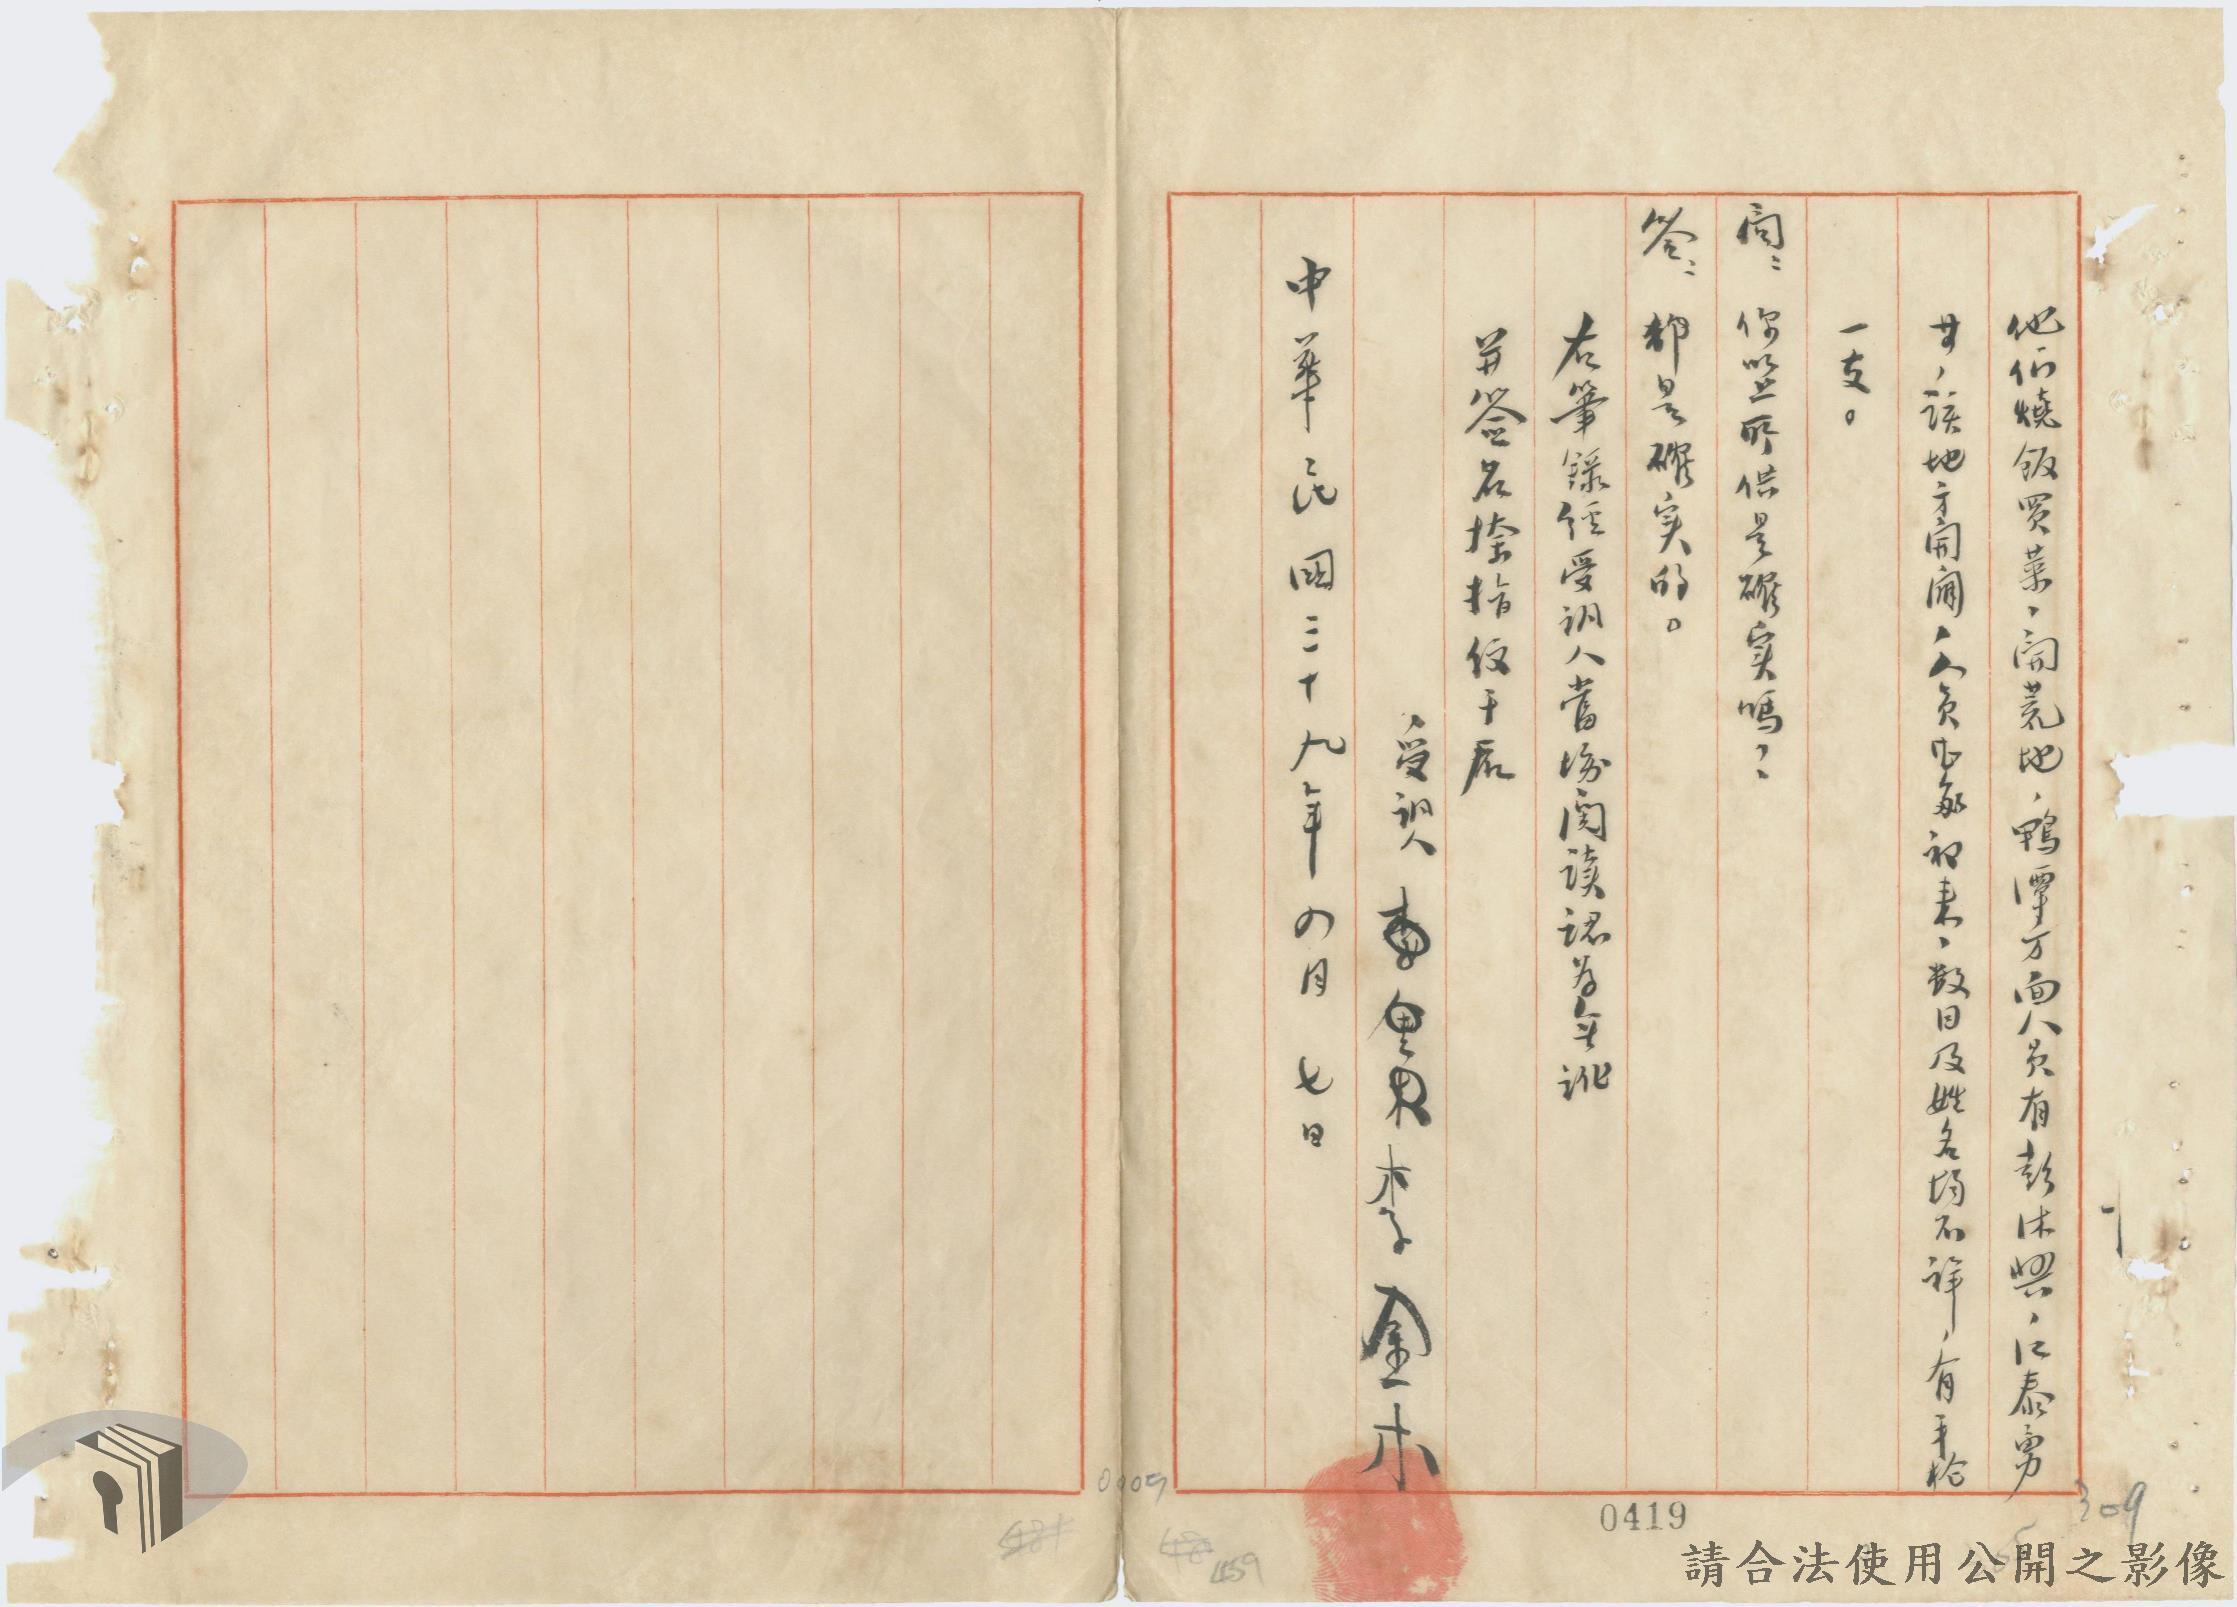 他们燒飯買菜、開荒地、鴨潭方面人員有彭沐興、江泰勇
廿、該地方開闢、人員也每初來、数目及姓名均不詳、有手枪
一支。
问：你以上所供是確实嗎？
答：都是確实的。
右筆録经受訊人當場閱讀認為無訛
并簽名捺指纹于后
受訊人 李金木
中華民國三十九年四月七日
0419
0005
309
459
請合法使用公開之影像